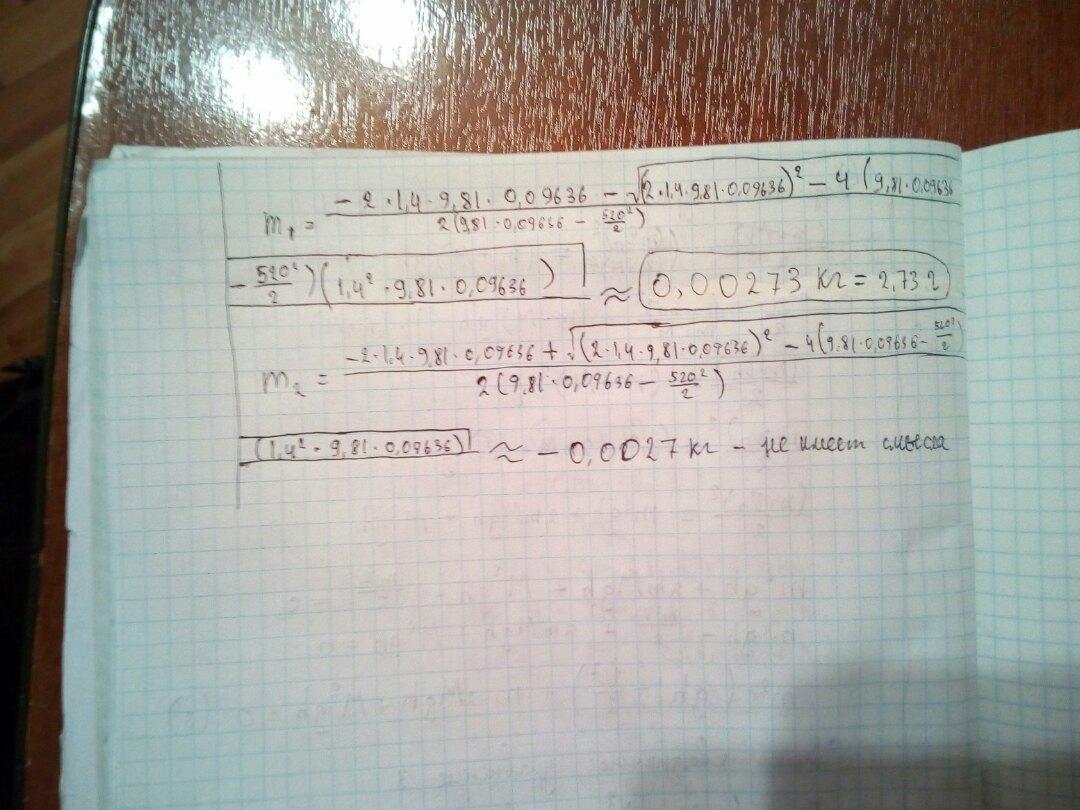 m₁ = (-2·1,4·9,81·0,09636 - √((2·1,4·9,81·0,09636)² - 4(9,81·0,09636
2(9,81·0,09636 - 520²/2)
- 520²/2)(1,4²·9,81·0,09636) ≈ 0,00273 кг = 2,73 г
m₂ = -2·1,4·9,81·0,09636 + √(2·1,4·9,81·0,09636)² - 4(9,81·0,09636 - 520²/2)
2(9,81·0,09636 - 520²/2)
(1,4²·9,81·0,09636) ≈ -0,0027 кг - не имеет смысла